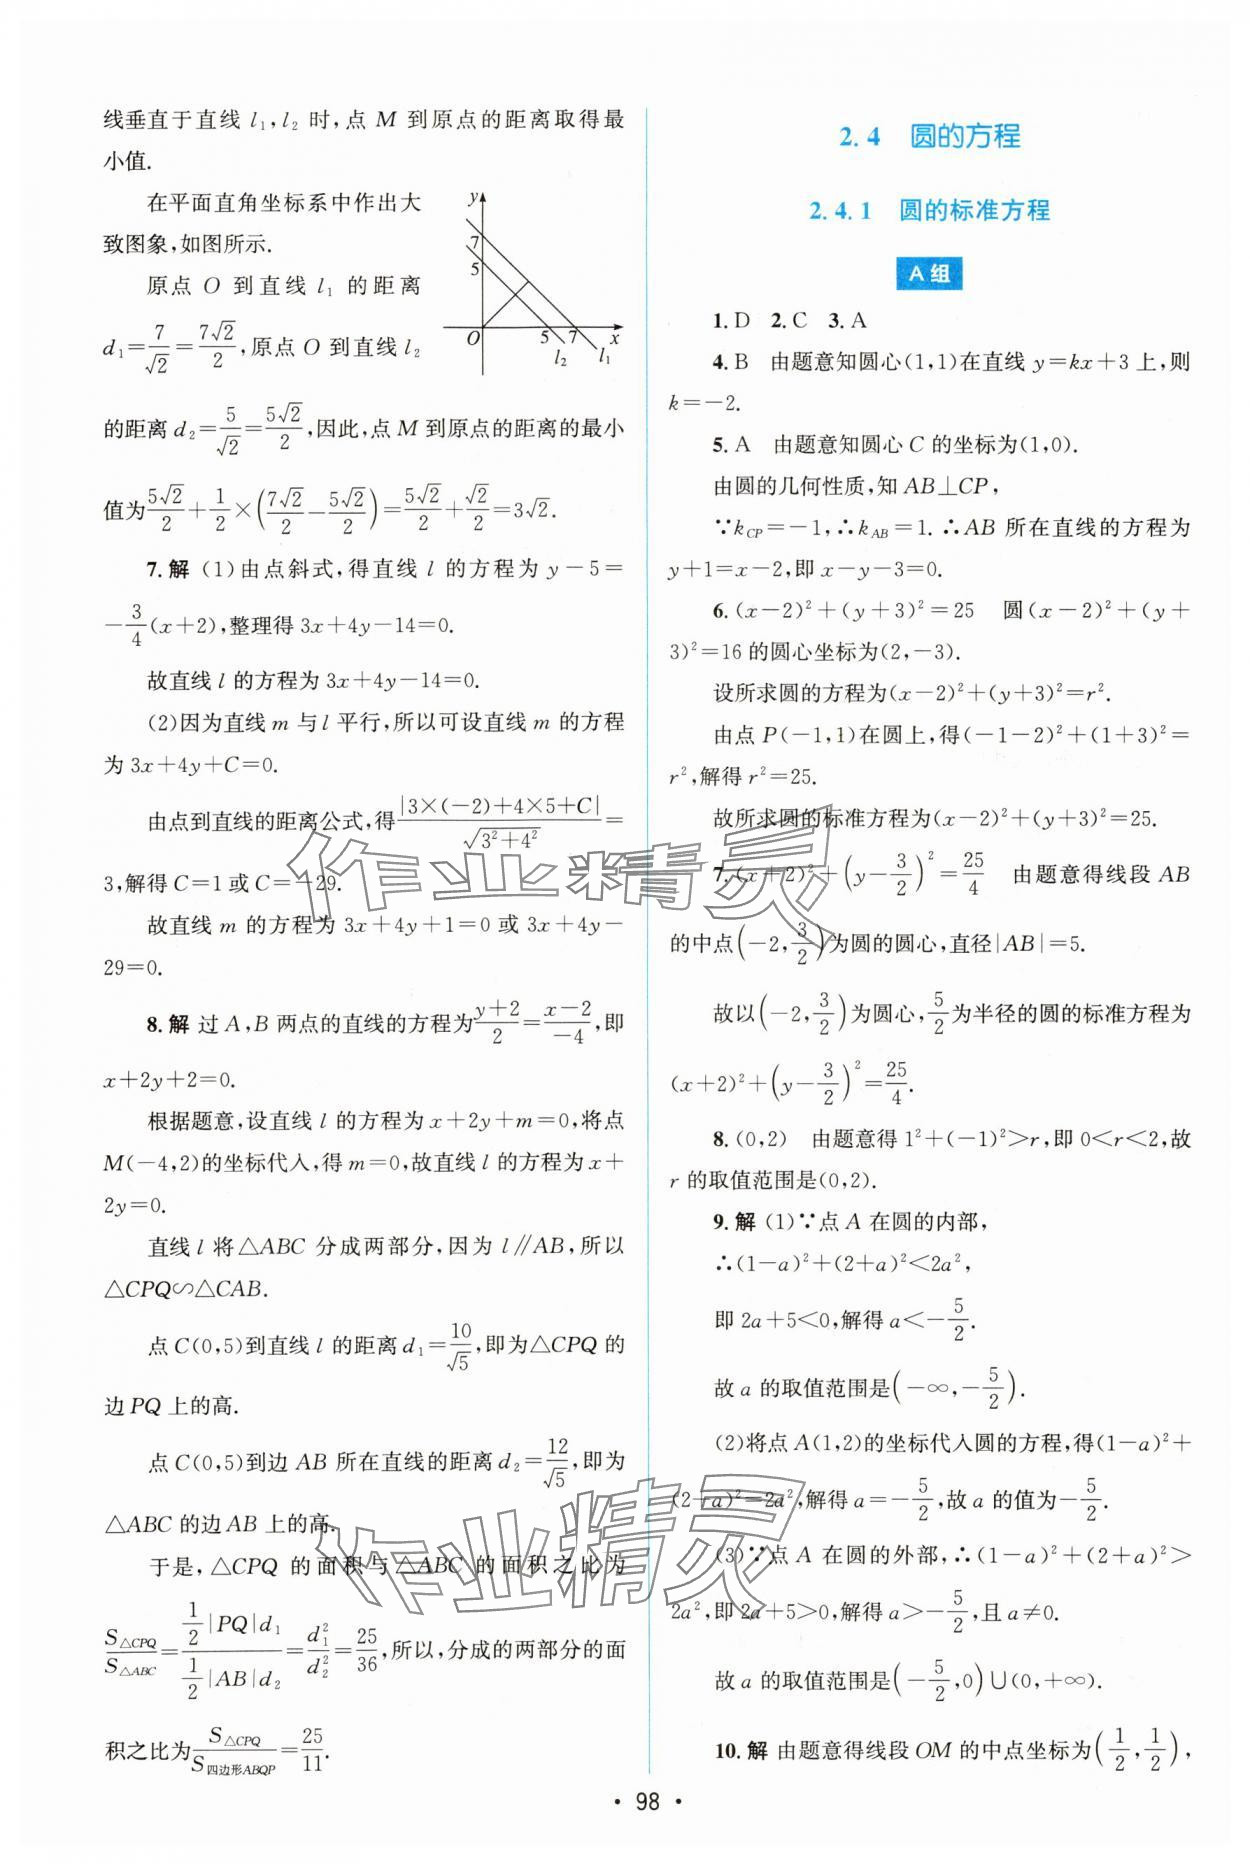 线垂直于直线 l₁,l₂ 时,点 M 到原点的距离取得最
小值.
在平面直角坐标系中作出大
致图象,如图所示.
原点 O 到直线 l₁ 的距离
d₁=7/√2=7√2/2,原点 O 到直线 l₂
y
7
5
O
5
7
x
l₂
l₁
的距离 d₂=5/√2=5√2/2,因此,点 M 到原点的距离的最小
值为5√2/2+1/2×(7√2/2-5√2/2)=5√2/2+√2/2=3√2.
7.解 (1)由点斜式,得直线 l 的方程为 y-5=
-3/4(x+2),整理得 3x+4y-14=0.
故直线 l 的方程为 3x+4y-14=0.
(2)因为直线 m 与 l 平行,所以可设直线 m 的方程
为 3x+4y+C=0.
由点到直线的距离公式,得|3×(-2)+4×5+C|/√(3²+4²)=
3,解得 C=1 或 C=-29.
故直线 m 的方程为 3x+4y+1=0 或 3x+4y-
29=0.
8.解 过 A,B 两点的直线的方程为(y+2)/2=(x-2)/(-4),即
x+2y+2=0.
根据题意,设直线 l 的方程为 x+2y+m=0,将点
M(-4,2)的坐标代入,得 m=0,故直线 l 的方程为 x+
2y=0.
直线 l 将△ABC 分成两部分,因为 l∥AB,所以
△CPQ∽△CAB.
点 C(0,5)到直线 l 的距离 d₁=10/√5,即为△CPQ 的
边 PQ 上的高.
点 C(0,5)到边 AB 所在直线的距离 d₂=12/√5,即为
△ABC 的边 AB 上的高.
于是,△CPQ 的面积与△ABC 的面积之比为
S△CPQ/S△ABC=(1/2|PQ|d₁)/(1/2|AB|d₂)=d₁²/d₂²=25/36,所以,分成的两部分的面
积之比为S△CPQ/S四边形ABQP=25/11.
2.4 圆的方程
2.4.1 圆的标准方程
A 组
1.D 2.C 3.A
4.B 由题意知圆心(1,1)在直线 y=kx+3 上,则
k=-2.
5.A 由题意知圆心 C 的坐标为(1,0).
由圆的几何性质,知 AB⊥CP,
∵k_CP=-1,∴k_AB=1.∴AB 所在直线的方程为
y+1=x-2,即 x-y-3=0.
6.(x-2)²+(y+3)²=25 圆(x-2)²+(y+
3)²=16 的圆心坐标为(2,-3).
设所求圆的方程为(x-2)²+(y+3)²=r².
由点 P(-1,1)在圆上,得(-1-2)²+(1+3)²=
r²,解得 r²=25.
故所求圆的标准方程为(x-2)²+(y+3)²=25.
7.(x+2)²+(y-3/2)²=25/4 由题意得线段 AB
的中点(-2,3/2)为圆的圆心,直径|AB|=5.
故以(-2,3/2)为圆心,5/2为半径的圆的标准方程为
(x+2)²+(y-3/2)²=25/4.
8.(0,2) 由题意得 1²+(-1)²>r,即 0<r<2,故
r 的取值范围是(0,2).
9.解 (1)∵点 A 在圆的内部,
∴(1-a)²+(2+a)²<2a²,
即 2a+5<0,解得 a<-5/2.
故 a 的取值范围是(-∞,-5/2).
(2)将点 A(1,2)的坐标代入圆的方程,得(1-a)²+
(2+a)²=2a²,解得 a=-5/2,故 a 的值为-5/2.
(3)∵点 A 在圆的外部,∴(1-a)²+(2+a)²>
2a²,即 2a+5>0,解得 a>-5/2,且 a≠0.
故 a 的取值范围是(-5/2,0)∪(0,+∞).
10.解 由题意得线段 OM 的中点坐标为(1/2,1/2),
作业精灵
作业精灵
· 98 ·